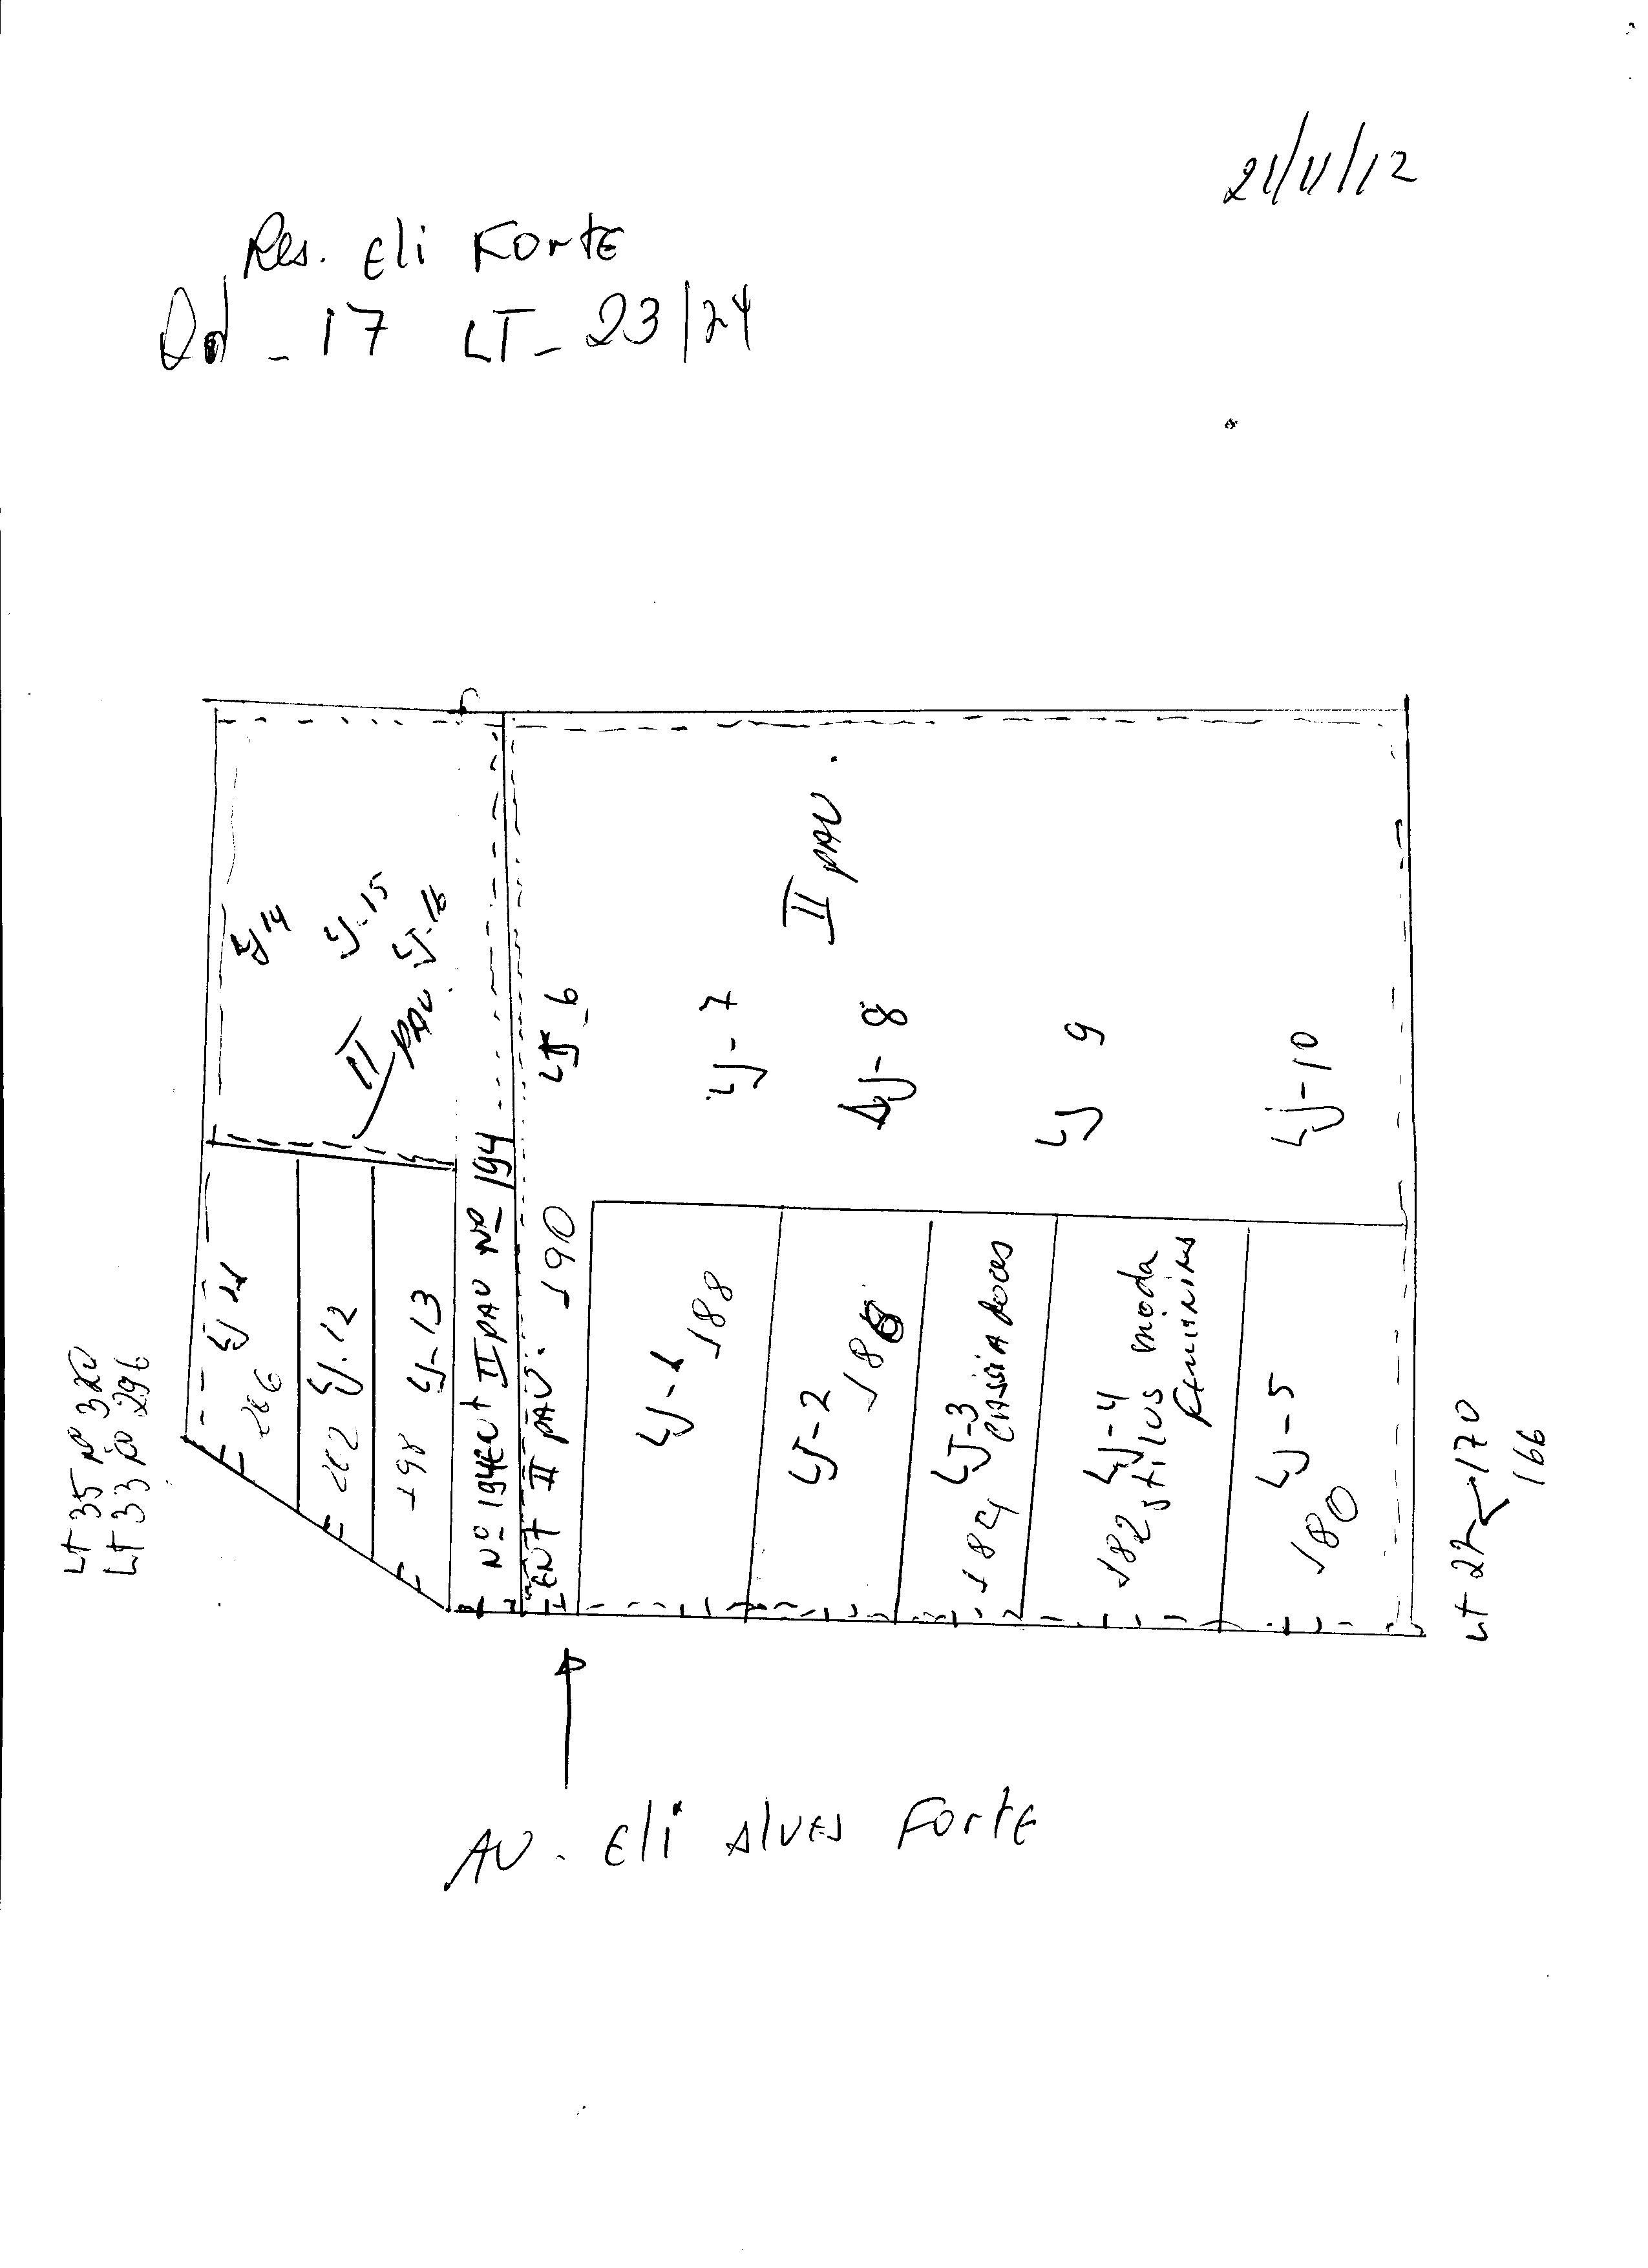 21/11/12
Res. Eli Forte
Qd - 17 LT - 23/24
LJ 14
LJ - 15
LJ - 16
II PAV.
II PAV.
LJ - 6
LJ - 7
LJ - 8
LJ 9
LJ - 10
LT 35 Nº 320
LT 33 Nº 296
LJ 11
206
LJ. 12
202
LJ - 13
198
Nº 194 ENT II PAV Nº 194
ENT II PAV. 190
LJ - 1
188
LJ - 2
186
LJ - 3
CASSIA DOCES
184
LJ - 4
182 stilus moda
FEMININA
LJ - 5
180
LT 22 170
166
AV. Eli Alves Forte